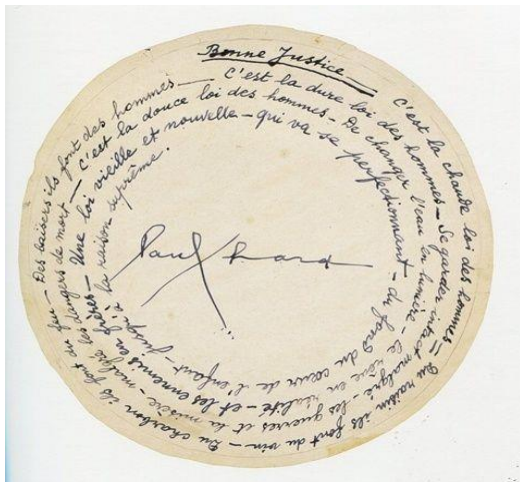 Bonne Justice
C'est la chaude loi des hommes — Du raisin ils font du vin — Du charbon ils font du feu — Des baisers ils font des hommes —
C'est la dure loi des hommes — Se garder intact malgré — les guerres et la misère — malgré les dangers de mort —
C'est la douce loi des hommes — De changer l'eau en lumière — le rêve en réalité — et les ennemis en frères —
Une loi vieille et nouvelle — qui va se perfectionnant — du fond du cœur de l'enfant — jusqu'à la raison suprême.
Paul Eluard